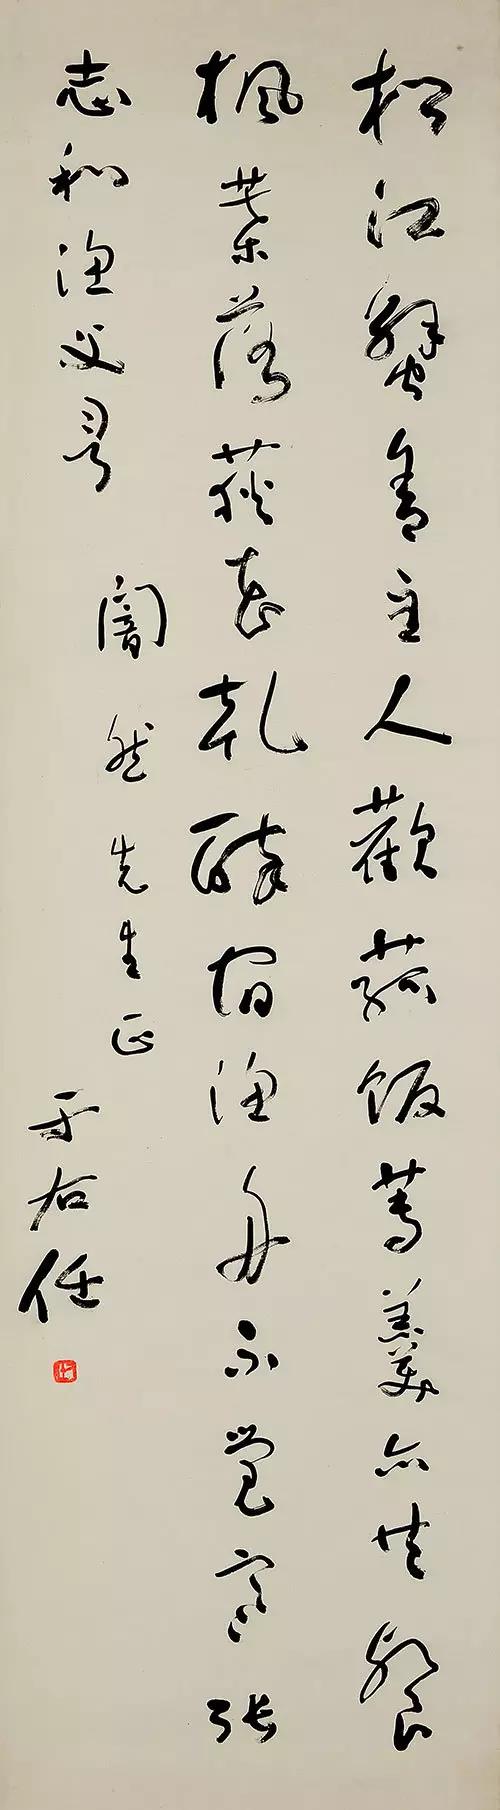 松江蟹舍主人歡菰飯蓴羹亦共餐
楓葉落荻花乾醉宿漁舟不覺寒張
志和漁父歌
闇然先生正
于右任